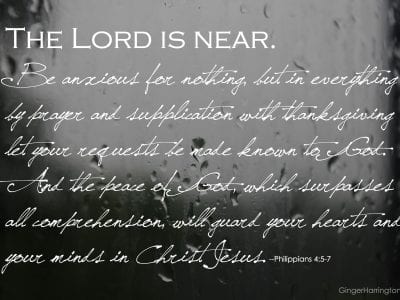 THE LORD IS NEAR.
Be anxious for nothing, but in everything
by prayer and supplication with thanksgiving
let your requests be made known to God.
And the peace of God, which surpasses
all comprehension, will guard your hearts and
your minds in Christ Jesus. --Philippians 4:5-7
GingerHarrington